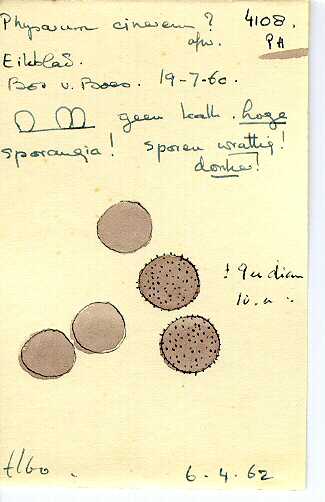 Physarum cinereum? 4108.
afw. PA
Eikblad.
Bos v. Boas. 19-7-60.
geen kalk. hoge
sporangia! sporen wrattig!
donker!
± 9 u diam
10 u
Elbo.
6.4.62